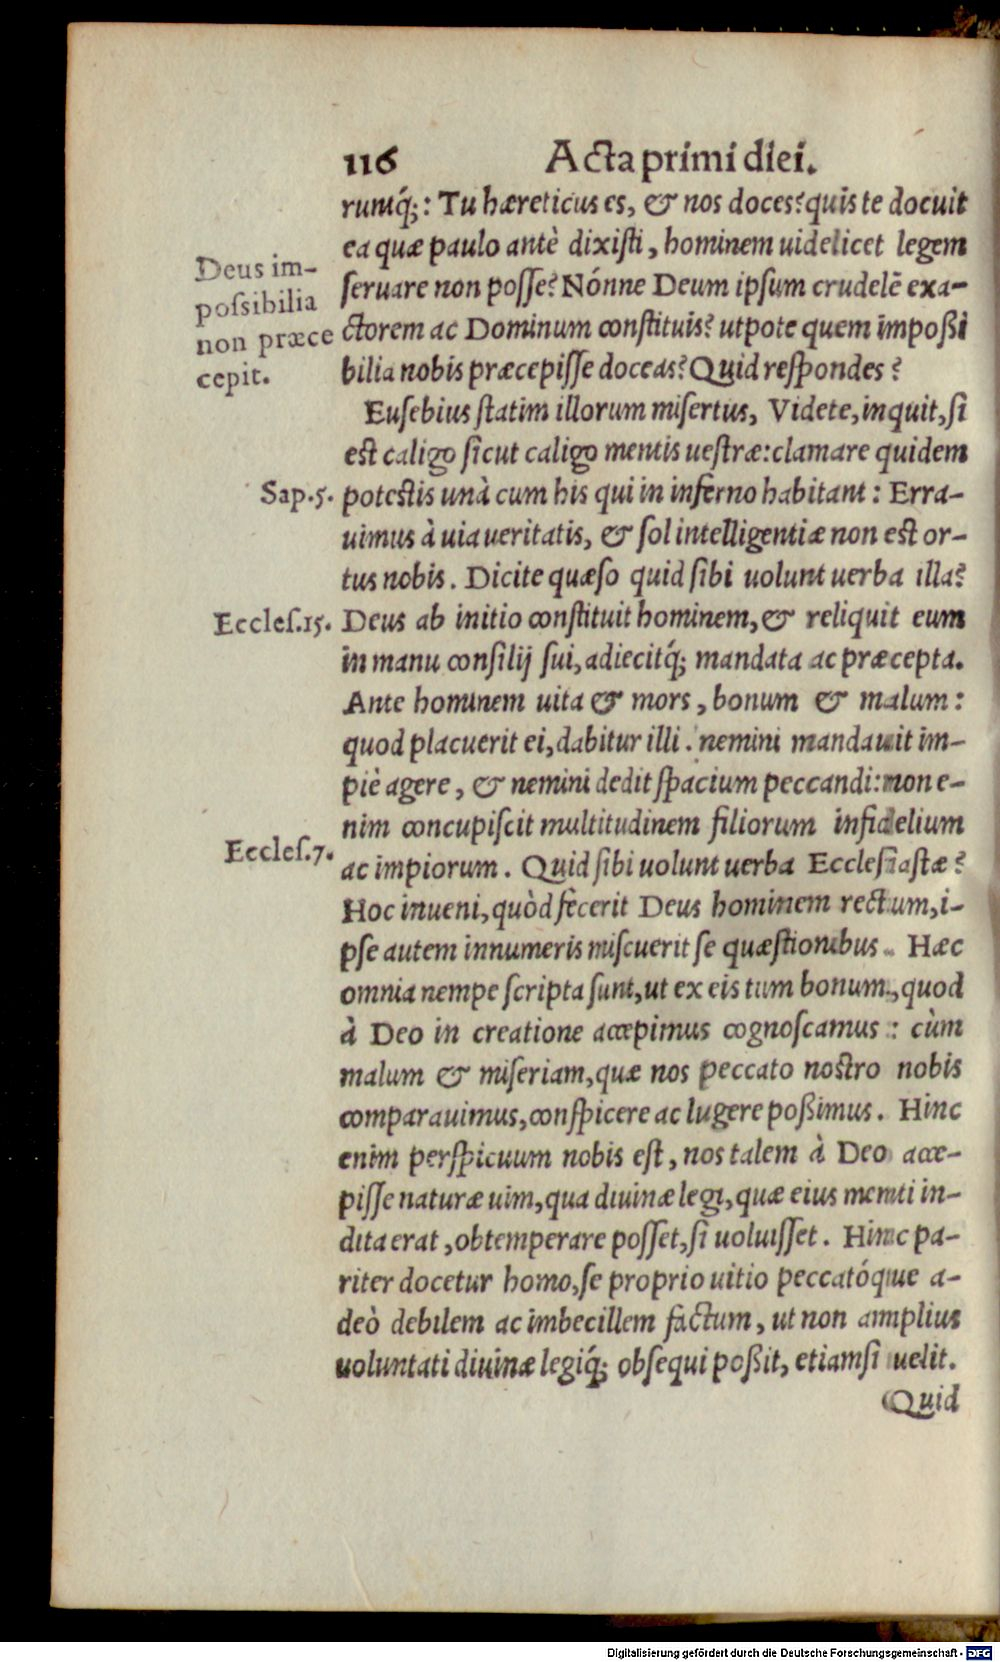 116 Acta primi diei.
rumq́;: Tu hæreticus es, & nos doces? quis te docuit
ea quæ paulo antè dixisti, hominem uidelicet legem
Deus im-
seruare non posse? Nónne Deum ipsum crudelē exa-
possibilia
non præce
ctorem ac Dominum constituis? utpote quem impoßi
cepit.
bilia nobis præcepisse doceas? Quid respondes?
Eusebius statim illorum misertus, Videte, inquit, si
est caligo sicut caligo mentis uestræ: clamare quidem
Sap.5.
potestis unà cum his qui in inferno habitant: Erra-
uimus à uia ueritatis, & sol intelligentiæ non est or-
tus nobis. Dicite quæso quid sibi uolunt uerba illa?
Eccles.15.
Deus ab initio constituit hominem, & reliquit eum
in manu consilij sui, adiecitq́; mandata ac præcepta.
Ante hominem uita & mors, bonum & malum:
quod placuerit ei, dabitur illi. nemini mandauit im-
piè agere, & nemini dedit spacium peccandi: non e-
nim concupiscit multitudinem filiorum infidelium
Eccles.7.
ac impiorum. Quid sibi uolunt uerba Ecclesiastæ?
Hoc inueni, quòd fecerit Deus hominem rectum, i-
pse autem innumeris miscuerit se quæstionibus. Hæc
omnia nempe scripta sunt, ut ex eis tum bonum, quod
à Deo in creatione accepimus cognoscamus: cùm
malum & miseriam, quæ nos peccato nostro nobis
comparauimus, conspicere ac lugere poßimus. Hinc
enim perspicuum nobis est, nos talem à Deo acce-
pisse naturæ uim, qua diuinæ legi, quæ eius menti in-
dita erat, obtemperare posset, si uoluisset. Hinc pa-
riter docetur homo, se proprio uitio peccatóque a-
deò debilem ac imbecillem factum, ut non amplius
uoluntati diuinæ legiq́; obsequi poßit, etiamsi uelit.
Quid
Digitalisierung gefördert durch die Deutsche Forschungsgemeinschaft - DFG